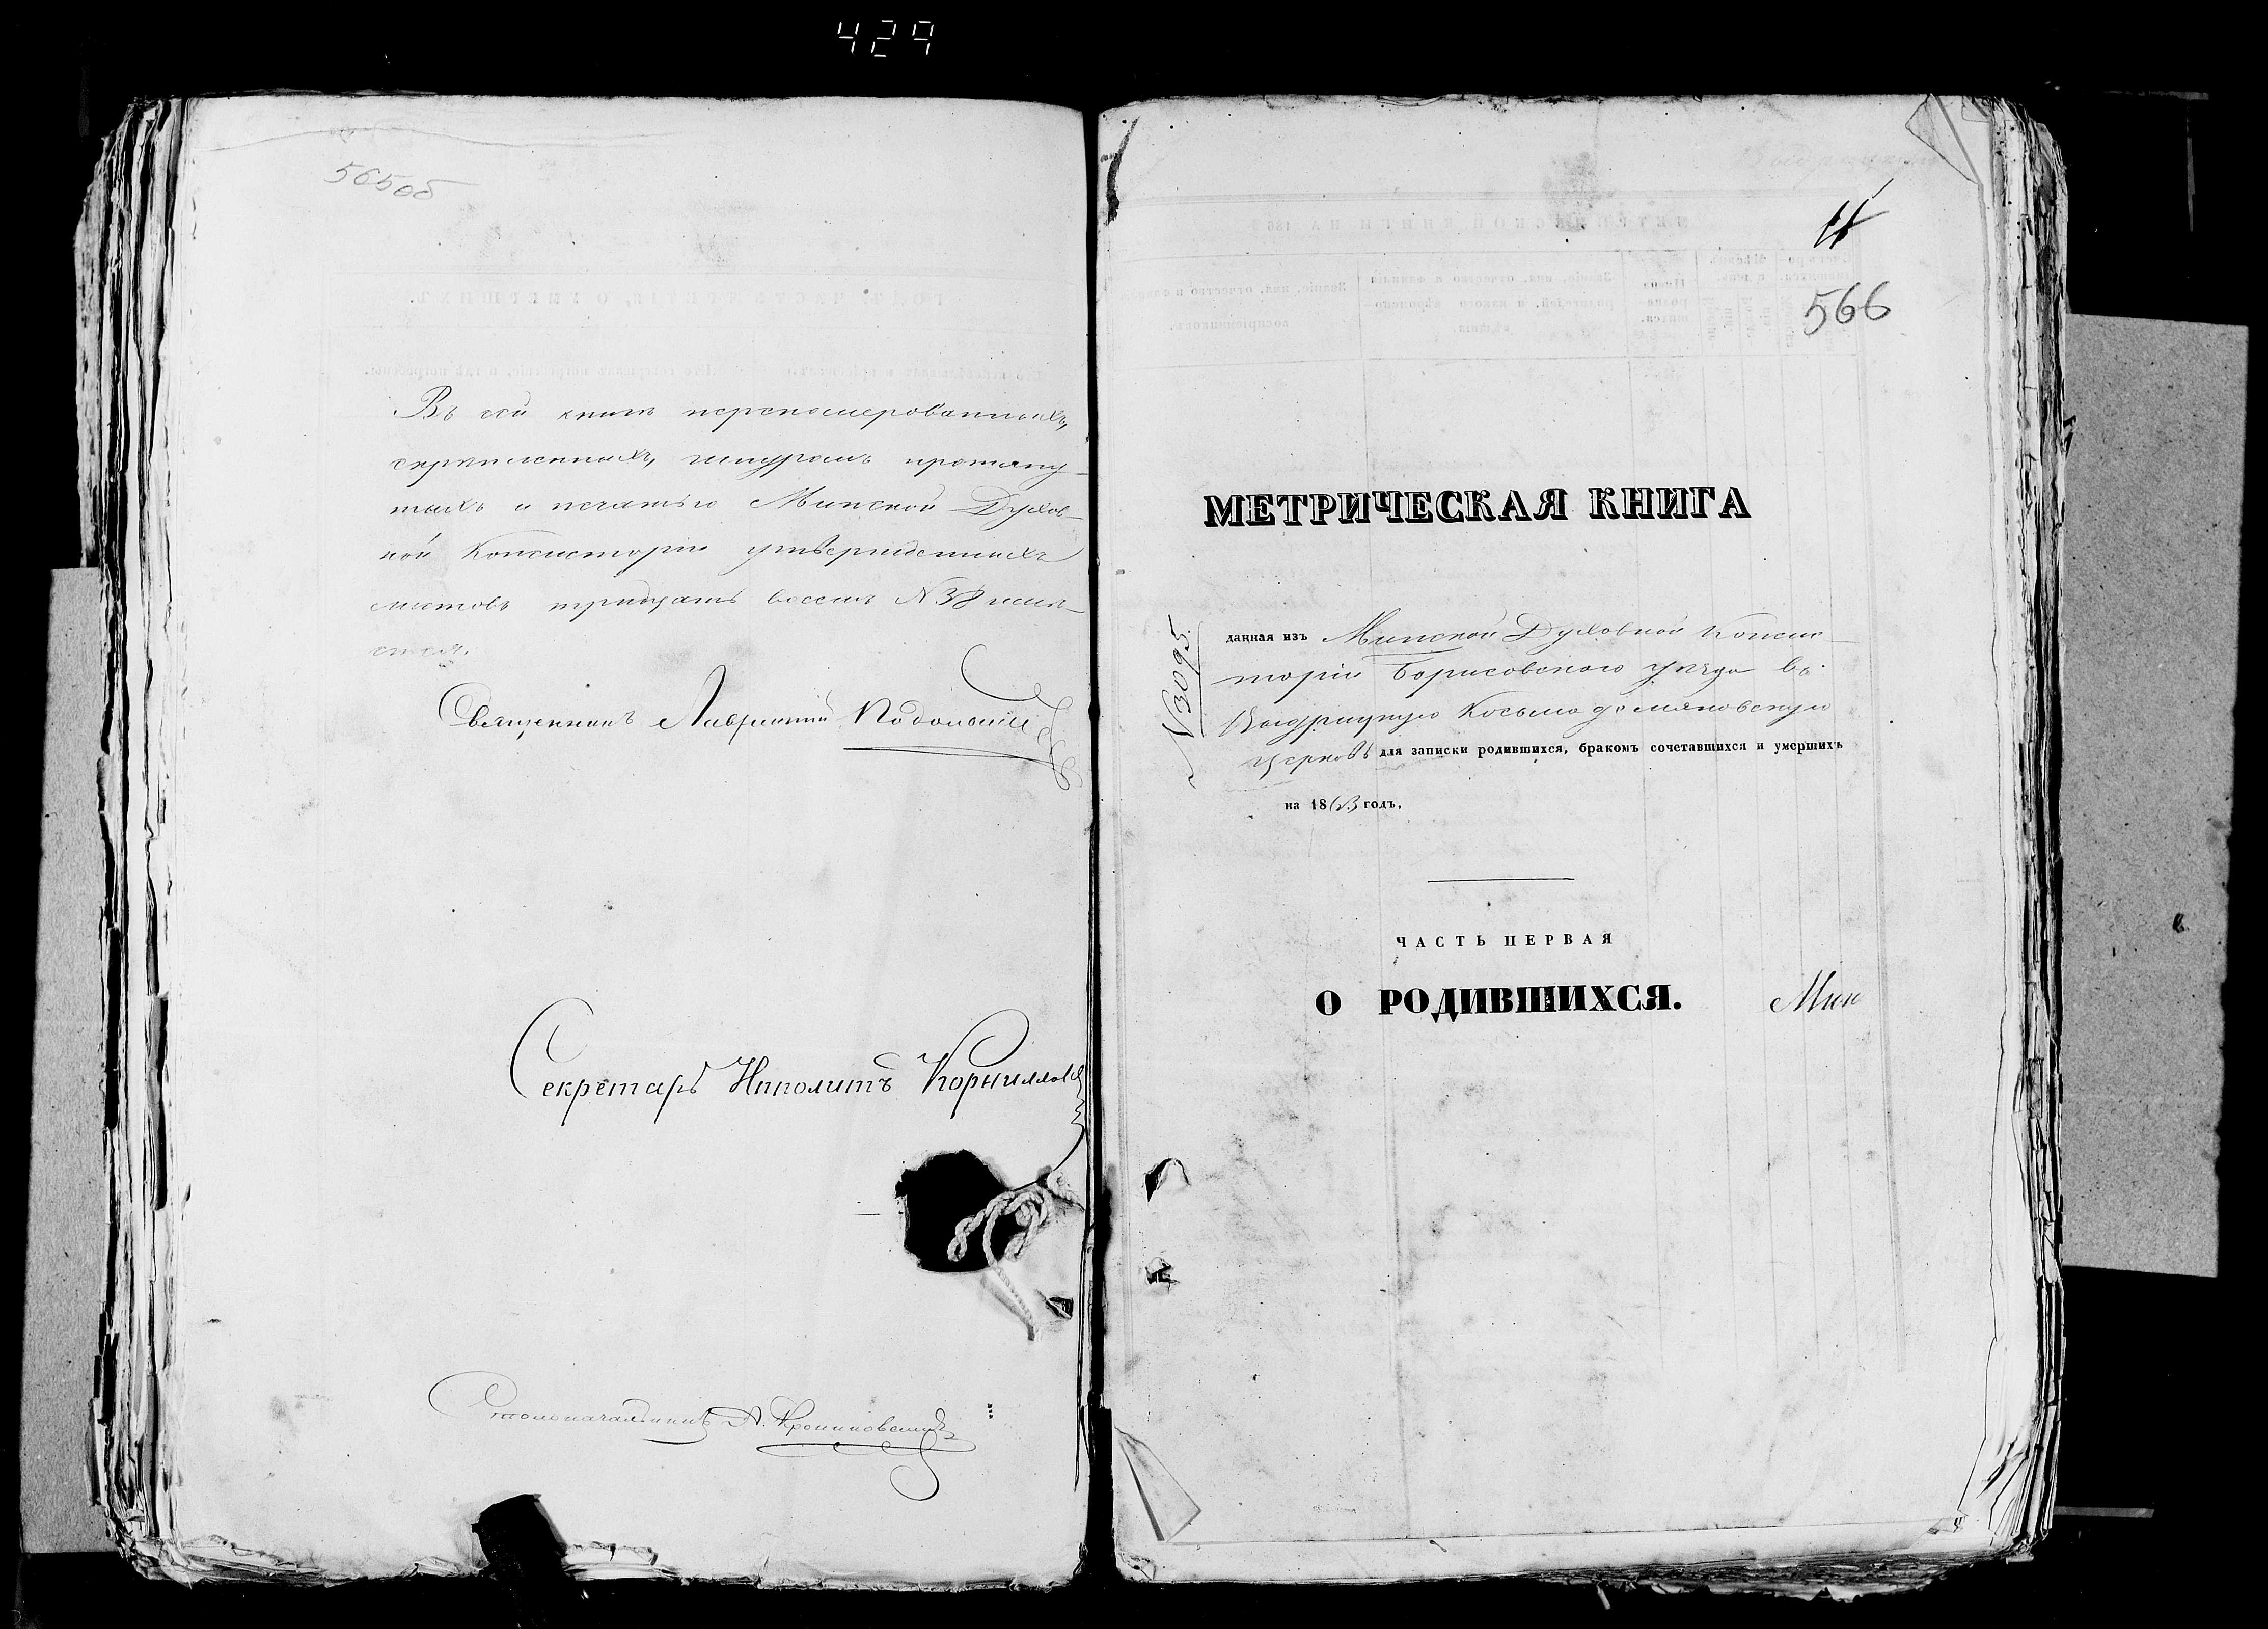 429
565об
Въ сей книгѣ перенумерованныхъ,
скрѣпленныхъ, шнуромъ протяну-
тыхъ и печатью Минской Духов-
ной Консисторіи утвержденныхъ
листовъ тридцать восемь N 38 имѣе-
тся.
Священникъ Лаврентій
Секретарь Ипполитъ Корниловъ
Столоначальникъ А.
566
МЕТРИЧЕСКАЯ КНИГА
N 3095.
данная изъ Минской Духовной Консис-
торіи Борисовскаго уѣзда въ
Космо Демьяновскую
церковь для записки родившихся, бракомъ сочетавшихся и умершихъ
на 1863 годъ.
ЧАСТЬ ПЕРВАЯ
О РОДИВШИХСЯ.
Мин